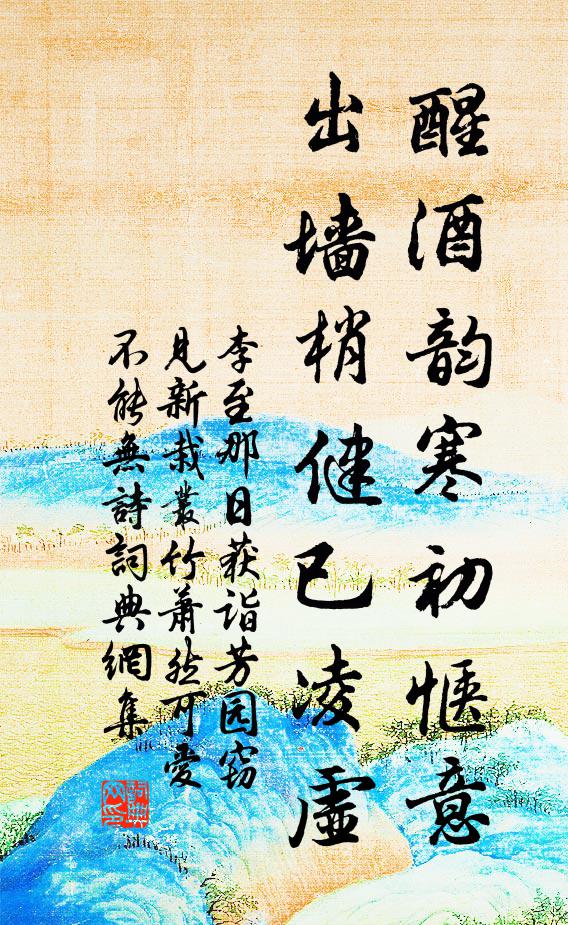 醒酒韵寒初惬意
出墙梢健已凌虚
李至那日获诣芳园窃
见新栽叢竹萧然可爱
不能無詩詞典網集